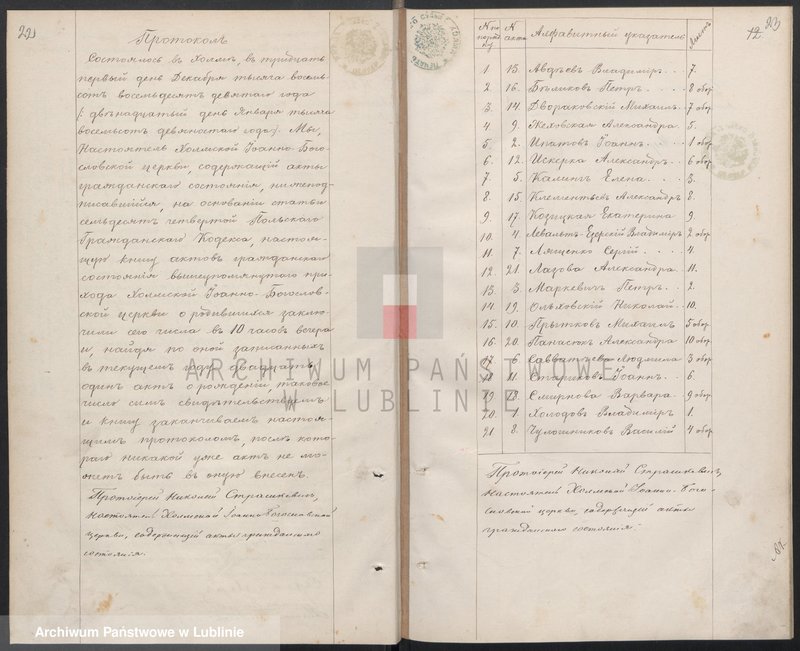 22
Протоколъ
Состоялось въ Холмѣ, въ тридцать
первый день Декабря тысяча восемь-
сотъ восемьдесятъ девятаго года
/: двѣнадцатый день Января тысяча
восемьсотъ девяностаго года:/. Мы,
Настоятель Холмской Іоанно-Бого-
словской церкви, содержащій акты
гражданскаго состоянія, нижепод-
писавшійся, на основаніи статьи
семьдесятъ четвертой Польскаго
Гражданскаго Кодекса настоя-
щую книгу актовъ гражданскаго
состоянія вышеупомянутаго при-
хода Холмской Іоанно-Богослов-
ской церкви о родившихся заклю-
чили сего числа въ 10 часовъ вечера
и, найдя по оной записанныхъ
въ текущемъ году двадцать
одинъ актъ о рожденіи, таковое
число симъ свидѣтельствуемъ
и книгу заканчиваемъ настоя-
щимъ протоколомъ, послѣ кото-
раго никакой уже актъ не мо-
жетъ быть въ оную внесенъ.
Протоіерей Николай Страшкевичъ,
Настоятель Холмской Іоанно-Богословской
церкви, содержащій акты гражданскаго
состоянія.
23
12
№ по порядку
№ акта
Алфавитный указатель
Листъ
1. 13. Авдѣевъ Владиміръ 7.
2. 16. Бѣликовъ Петръ 8 обор.
3. 14. Двораковскій Михаилъ 7 обор.
4. 9. Жеховская Александра 5.
5. 2. Ипатовъ Іоаннъ 1 обор
6. 12. Искерка Александръ 6 обор
7. 5. Калинъ Елена 3.
8. 15. Клементьевъ Александръ 8.
9. 17. Козицкая Екатерина 9.
10. 4. Левальтъ-Езерскій Владиміръ 2 обор
11. 7. Лященко Сергій 4.
12. 21. Лазова Александра 11.
13. 3. Маркевичъ Петръ 2.
14. 19. Ольховскій Николай 10.
15. 10. Прытковъ Михаилъ 5 обор
16. 20. Панасюкъ Александра 10 обор
17. 6. Савватѣева Людмила 3 обор
18. 11. Стариковъ Іоаннъ 6.
19. 18. Смирнова Варвара 9 обор
20. 1. Холодовъ Владиміръ 1.
21. 8. Чулошниковъ Василій 4 обор
Протоіерей Николай Страшкевичъ,
Настоятель Холмской Іоанно-Бого-
словской церкви, содержащій акты
гражданскаго состоянія.
ARCHIWUM PAŃSTWOWE
W LUBLINIE
Archiwum Państwowe w Lublinie